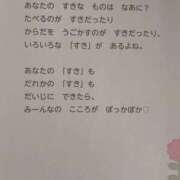 あなたの すきな ものは なあに?
たべるのが すきだったり
からだを うごかすのが すきだったり
いろいろな 「すき」が あるよね。
あなたの 「すき」も
だれかの 「すき」も
だいじに できたら、
みーんなの こころが ぽっかぽか♡